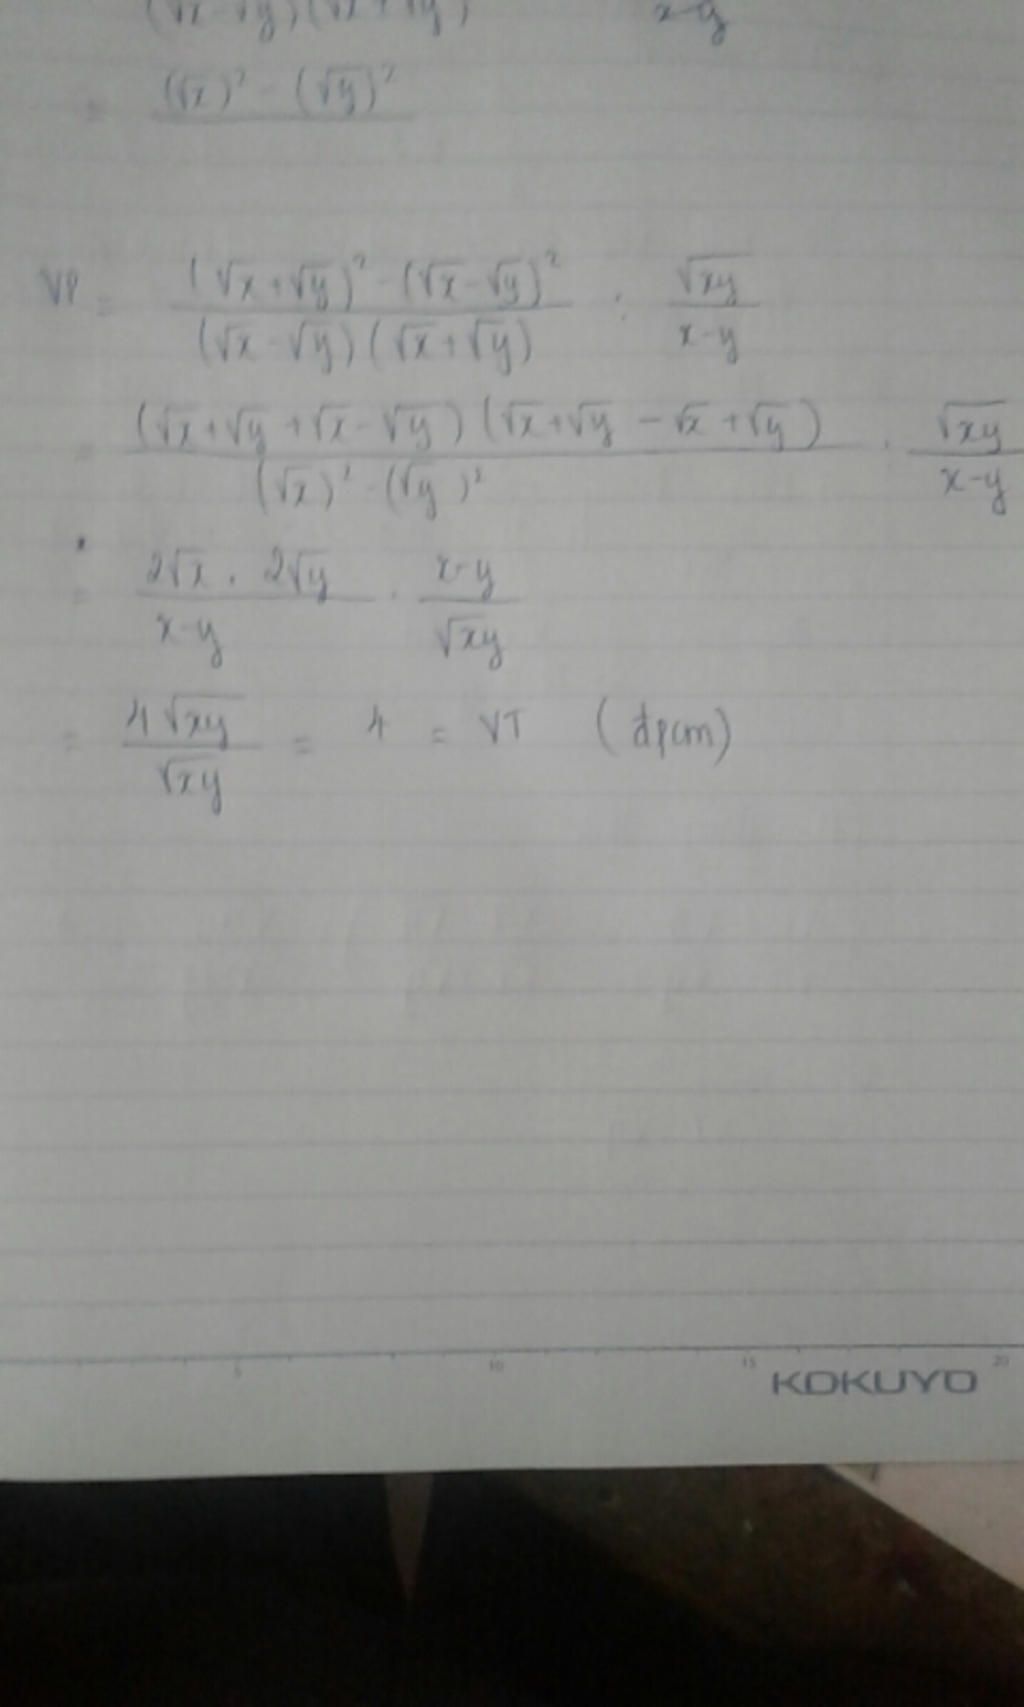 (√x-√y)(√x+√y) x-y
= (√x)² - (√y)²
VP = ((√x+√y)² - (√x-√y)²)/((√x-√y)(√x+√y)) : √xy/(x-y)
= ((√x+√y+√x-√y)(√x+√y-√x+√y))/((√x)²-(√y)²) . √xy/(x-y)
= (2√x . 2√y)/(x-y) . (x-y)/√xy
= 4√xy/√xy = 4 = VT (đpcm)
5 10 15 20
KOKUYO